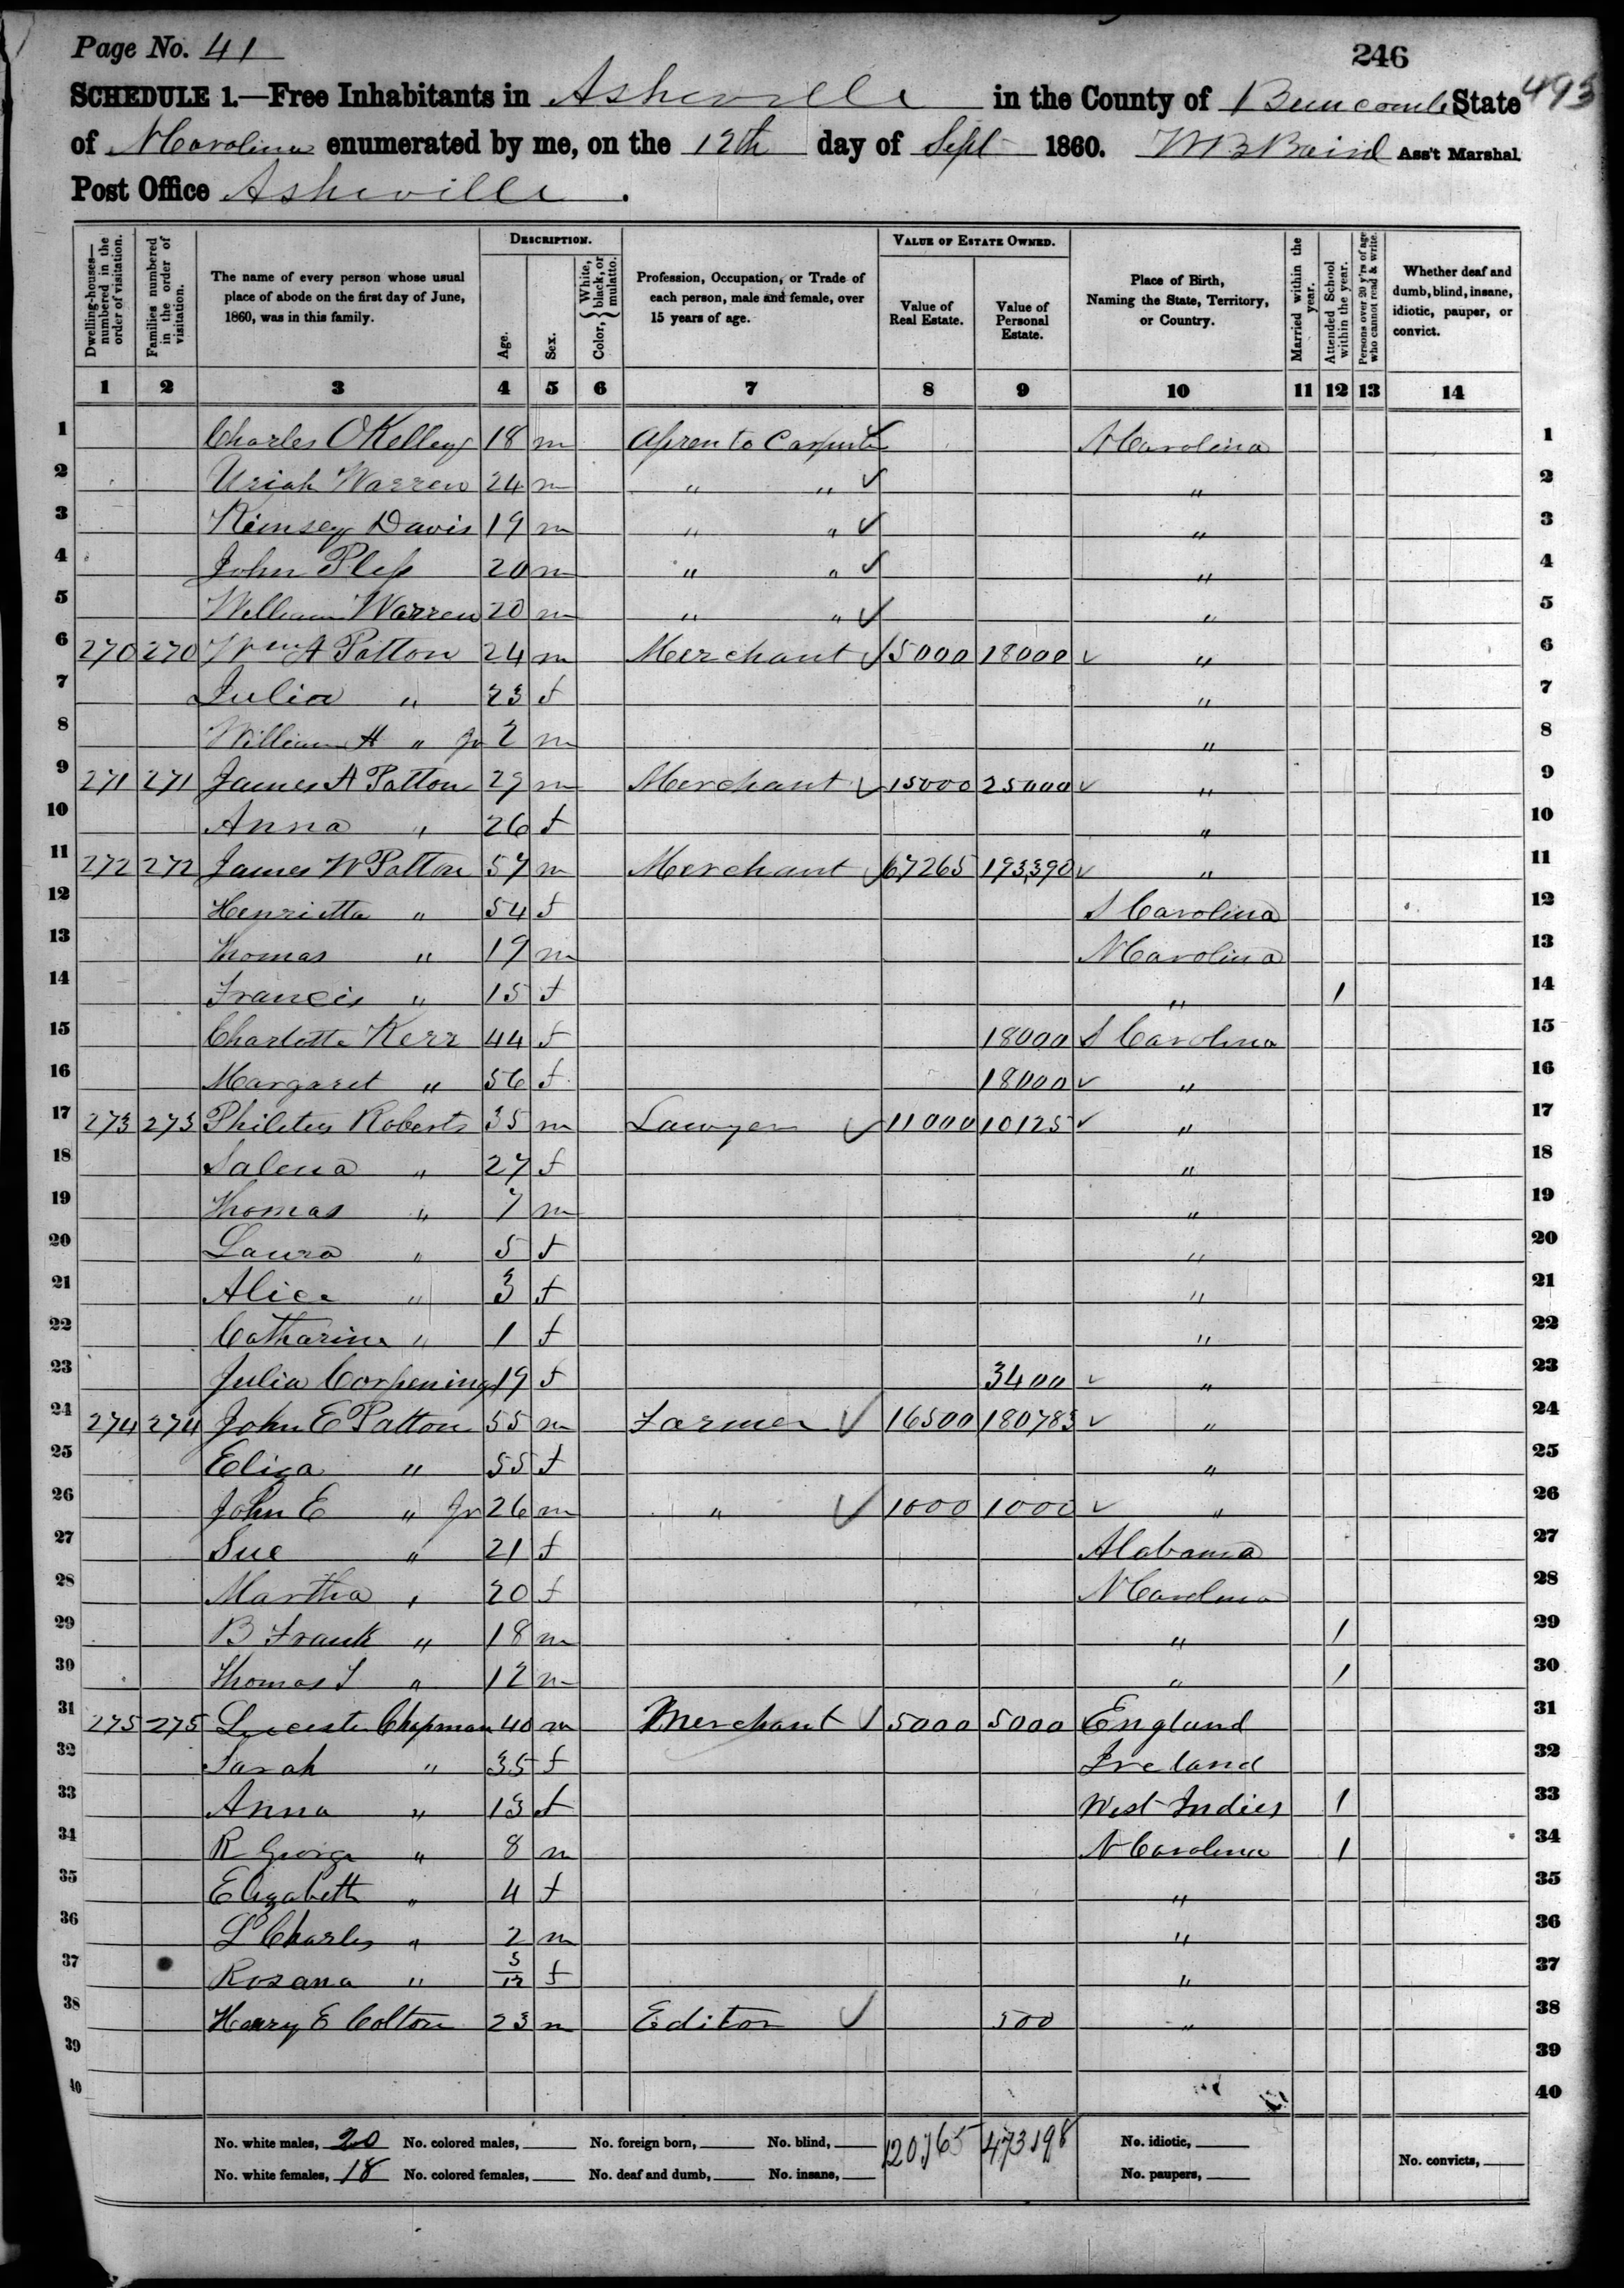 Page No. 41
246
493
SCHEDULE 1.—Free Inhabitants in Asheville in the County of Buncombe State
of N Carolina enumerated by me, on the 12th day of Sept 1860. W B Baird Ass't Marshal.
Post Office Asheville .
Dwelling-houses—numbered in the order of visitation.
Families numbered in the order of visitation.
The name of every person whose usual place of abode on the first day of June, 1860, was in this family.
DESCRIPTION.
Age.
Sex.
Color, { White, black, or mulatto.
Profession, Occupation, or Trade of each person, male and female, over 15 years of age.
VALUE OF ESTATE OWNED.
Value of Real Estate.
Value of Personal Estate.
Place of Birth, Naming the State, Territory, or Country.
Married within the year.
Attended School within the year.
Persons over 20 y'rs of age who cannot read & write.
Whether deaf and dumb, blind, insane, idiotic, pauper, or convict.
1 2 3 4 5 6 7 8 9 10 11 12 13 14
1 Charles OKelley 18 m Apren to Carpenter N Carolina 1
2 Uriah Warren 24 m " " " 2
3 Kimsey Davis 19 m " " " 3
4 John Pless 20 m " " " 4
5 William Warren 20 m " " " 5
6 270 270 Wm A Patton 24 m Merchant 5000 18000 " 6
7 Julia " 23 f " 7
8 William A " Jr 2 m " 8
9 271 271 James A Patton 29 m Merchant 15000 25000 " 9
10 Anna " 26 f " 10
11 272 272 James W Patton 57 m Merchant 67265 193,390 " 11
12 Henrietta " 54 f S Carolina 12
13 Thomas " 19 m N Carolina 13
14 Francis " 15 f " 1 14
15 Charlotte Kerr 44 f 18000 S Carolina 15
16 Margaret " 56 f 18000 " 16
17 273 273 Philetus Roberts 35 m Lawyer 11000 10125 " 17
18 Salena " 27 f " 18
19 Thomas " 7 m " 19
20 Laura " 5 f " 20
21 Alice " 3 f " 21
22 Catharine " 1 f " 22
23 Julia Corpening 19 f 3400 " 23
24 274 274 John E Patton 55 m Farmer 16500 180783 " 24
25 Eliza " 55 f " 25
26 John E " Jr 26 m " 1000 1000 " 26
27 Sue " 21 f Alabama 27
28 Martha " 20 f N Carolina 28
29 B Frank " 18 m " 1 29
30 Thomas T " 12 m " 1 30
31 275 275 Leicester Chapman 40 m Merchant 5000 5000 England 31
32 Sarah " 35 f Ireland 32
33 Anna " 13 f West Indies 1 33
34 R George " 8 m N Carolina 1 34
35 Elizabeth " 4 f " 35
36 L Charles " 2 m " 36
37 Rozana " 5/12 f " 37
38 Henry E Colton 23 m Editor 500 " 38
39 39
40 40
No. white males, 20 No. colored males, No. foreign born, No. blind, 120765 473198 No. idiotic,
No. white females, 18 No. colored females, No. deaf and dumb, No. insane, No. paupers, No. convicts,